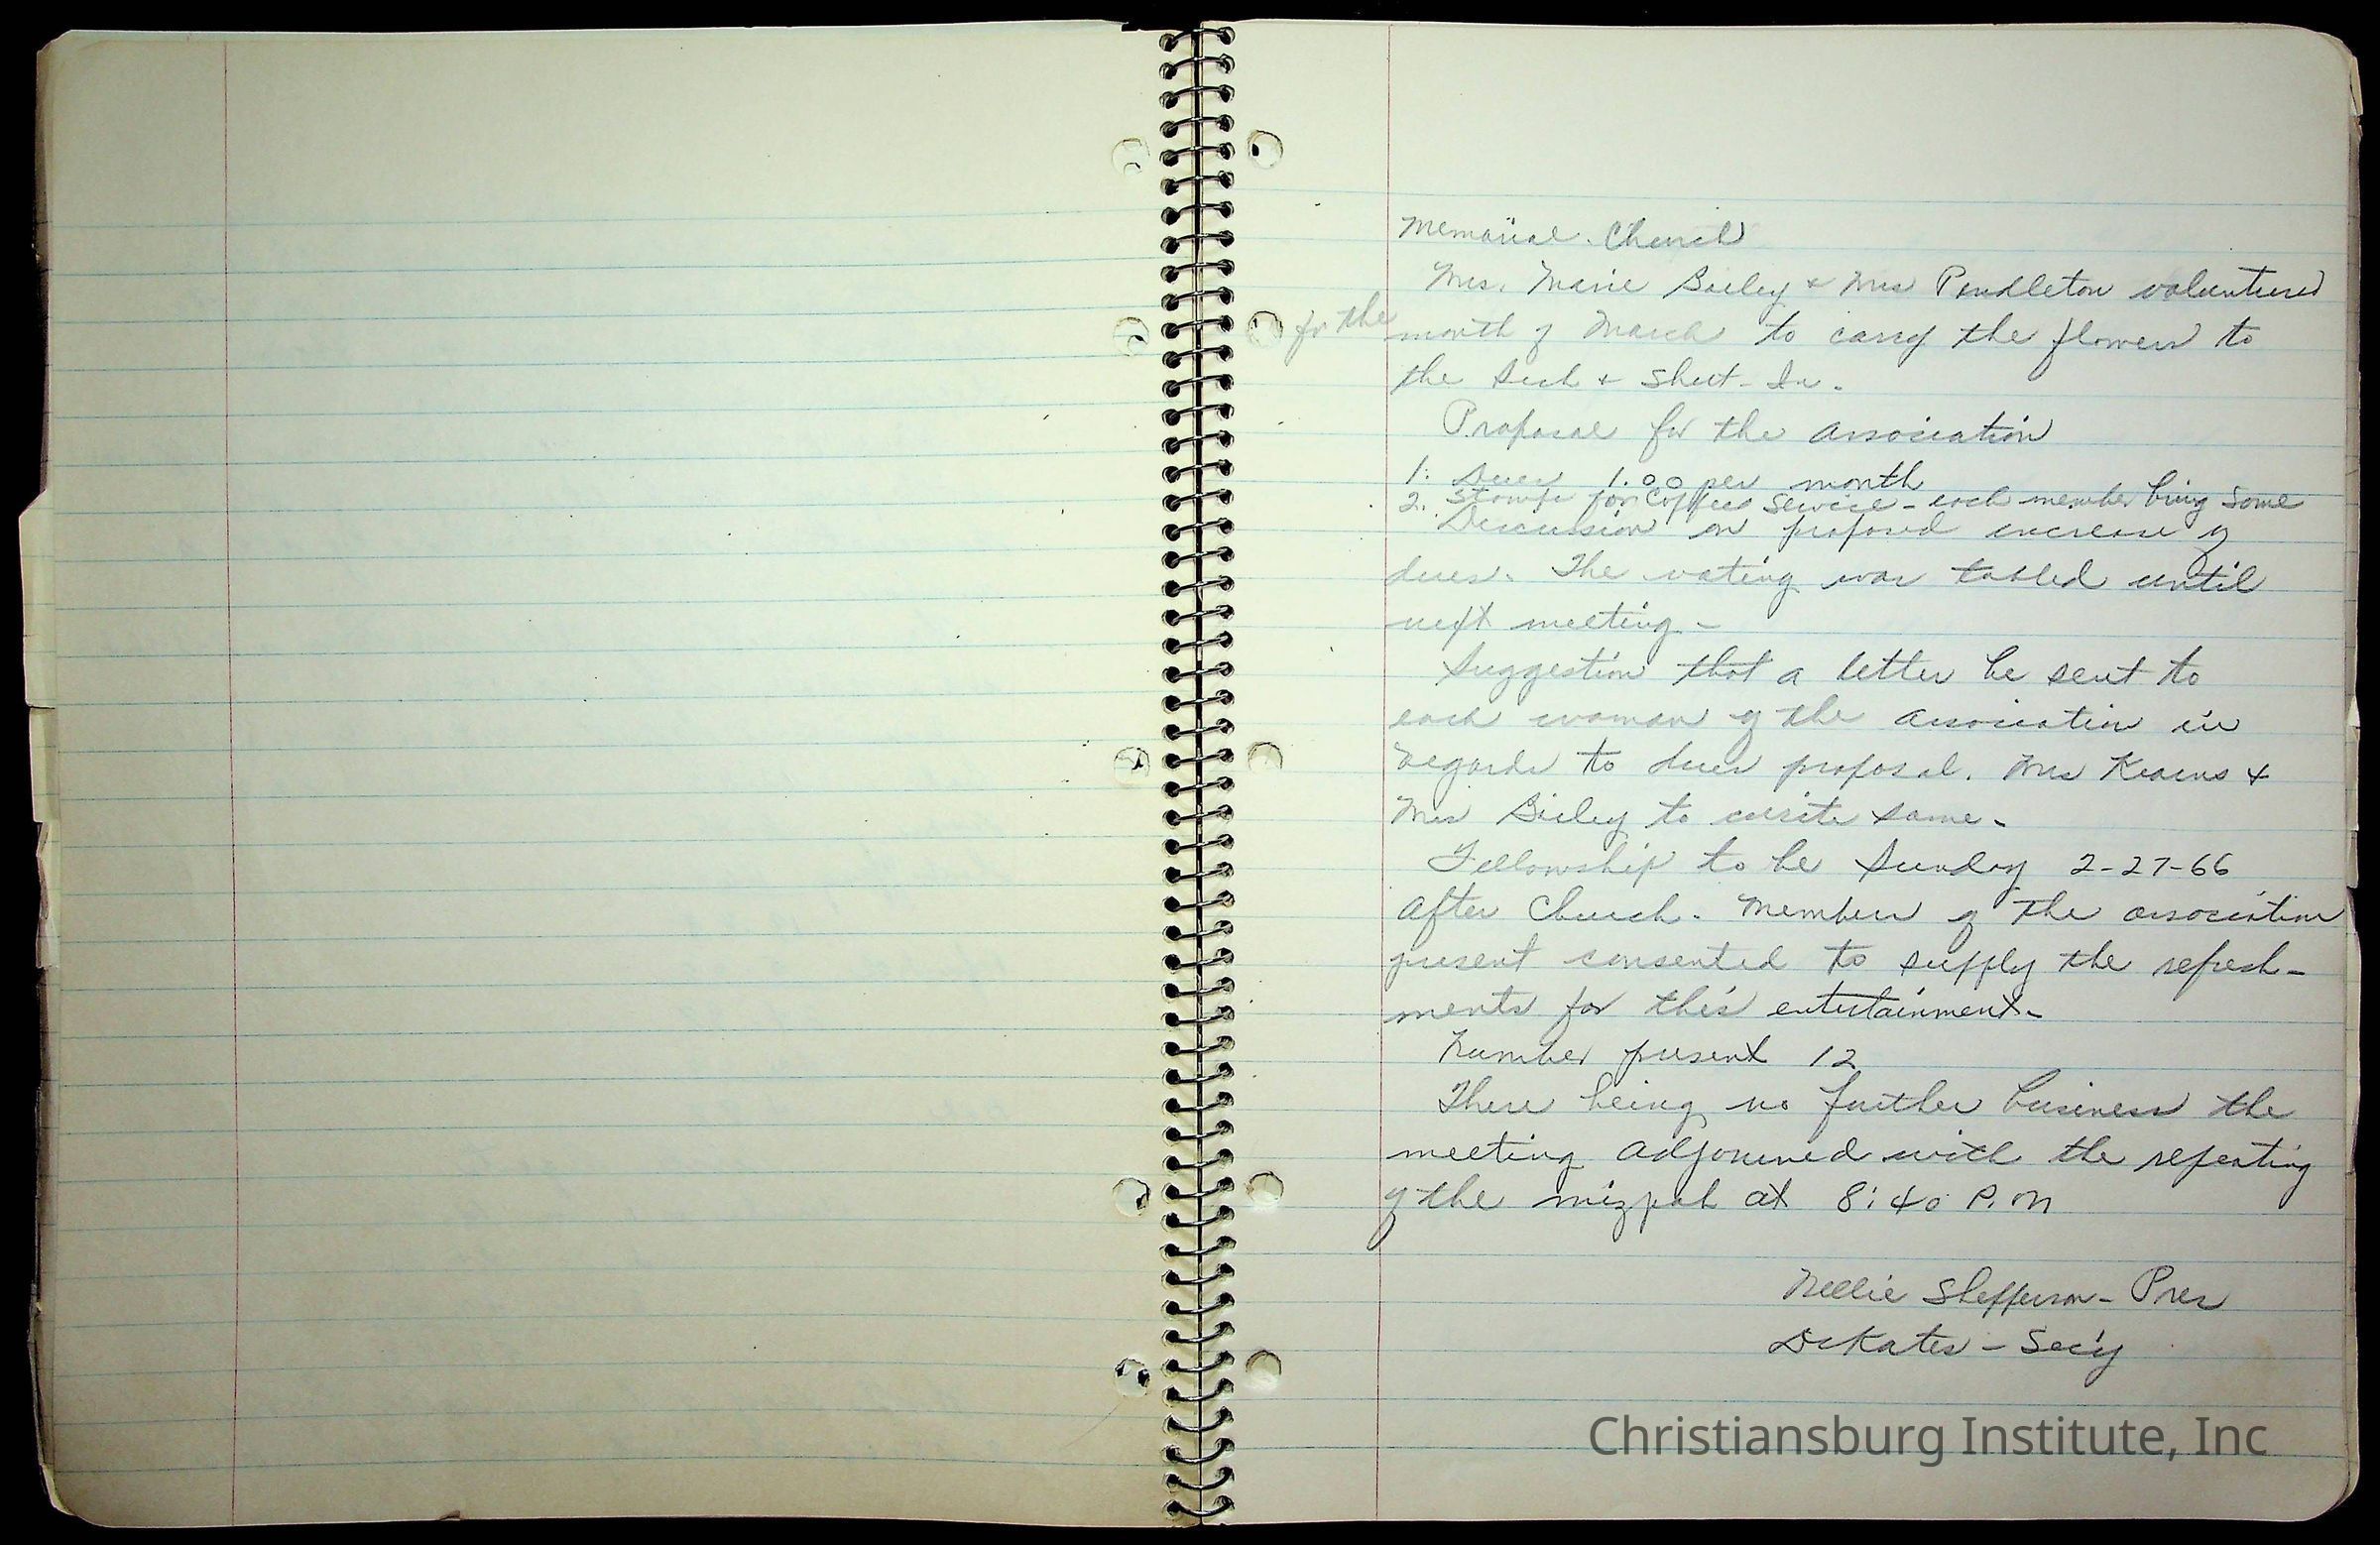 Memorial. Church
Mrs. Marie Bailey & Mrs Pendleton volunteered
for the month of March to carry the flowers to
the Sick & Shut-In.
Proposal for the Association
1. Dues 1.00 per month
2. Stamps for Coffee Service - each member bring some
Discussion on proposed increase of
dues. The voting was tabled until
next meeting -
Suggestion that a letter be sent to
each woman of the Association in
regards to dues proposal. Mrs Kearns &
Mrs Bailey to write same.
Fellowship to be Sunday 2-27-66
After Church. Members of the association
present consented to supply the refresh-
ments for this entertainment.
Number present 12
There being no further business the
meeting adjourned with the repeating
of the mizpah at 8:40 P.M
Nellie Shefferson - Pres
D Kates - Sec'y
Christiansburg Institute, Inc